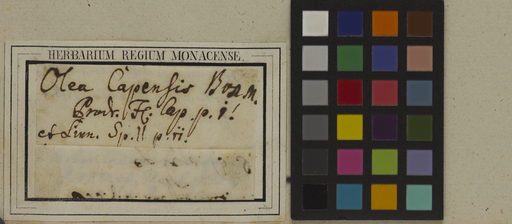 HERBARIUM REGIUM MONACENSE.
Olea Capensis
Prodr. Fl. Cap. p. 1!
et Linn. Sp. II p. 11.